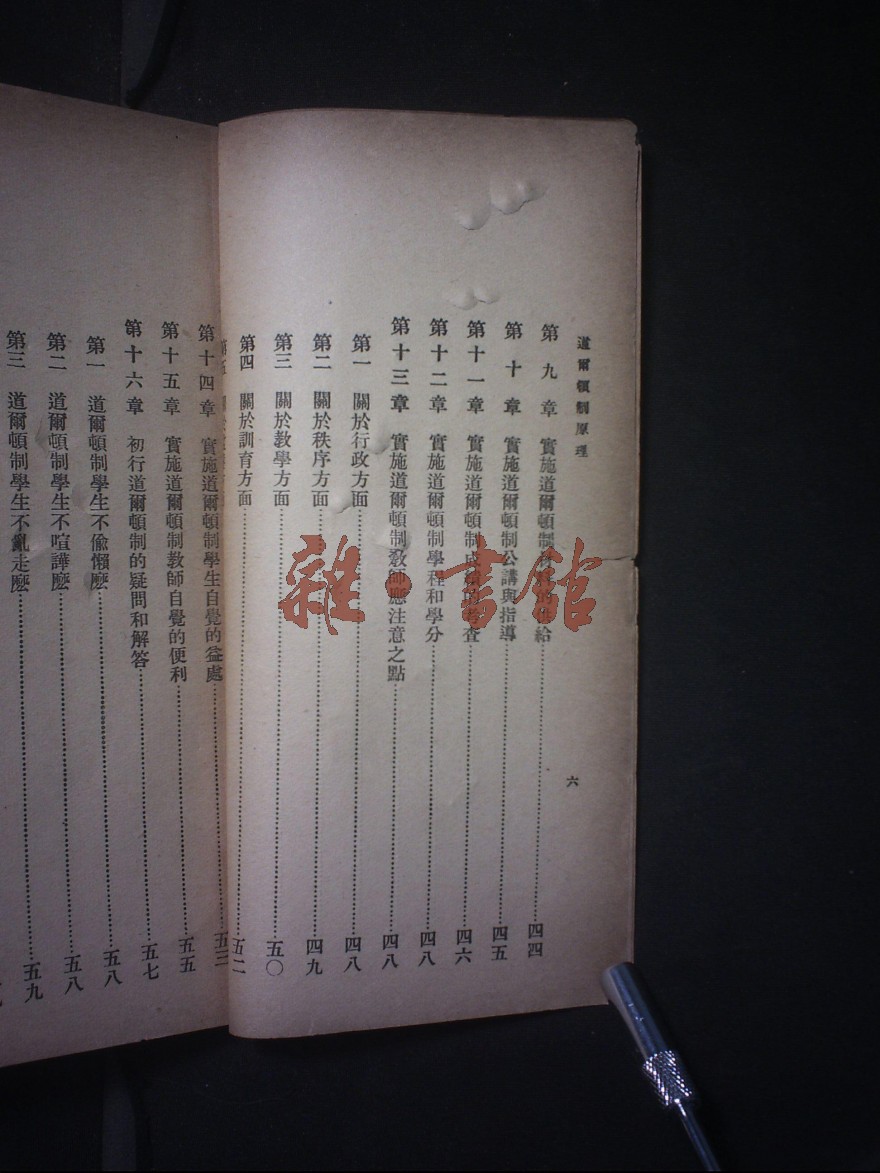 道爾頓制原理
六
第九章 實施道爾頓制材料的供給…………四四
第十章 實施道爾頓制公講與指導…………四五
第十一章 實施道爾頓制成績的考查…………四六
第十二章 實施道爾頓制學程和學分…………四八
第十三章 實施道爾頓制教師應注意之點…………四八
第一 關於行政方面…………四八
第二 關於秩序方面…………四九
第三 關於教學方面…………五〇
第四 關於訓育方面…………五二
第五 關於
第十四章 實施道爾頓制學生自覺的益處…………五三
第十五章 實施道爾頓制教師自覺的便利…………五五
第十六章 初行道爾頓制的疑問和解答…………五七
第一 道爾頓制學生不偷懶麽…………五八
第二 道爾頓制學生不喧譁麽…………五八
第三 道爾頓制學生不亂走麽…………五九
雜·書館